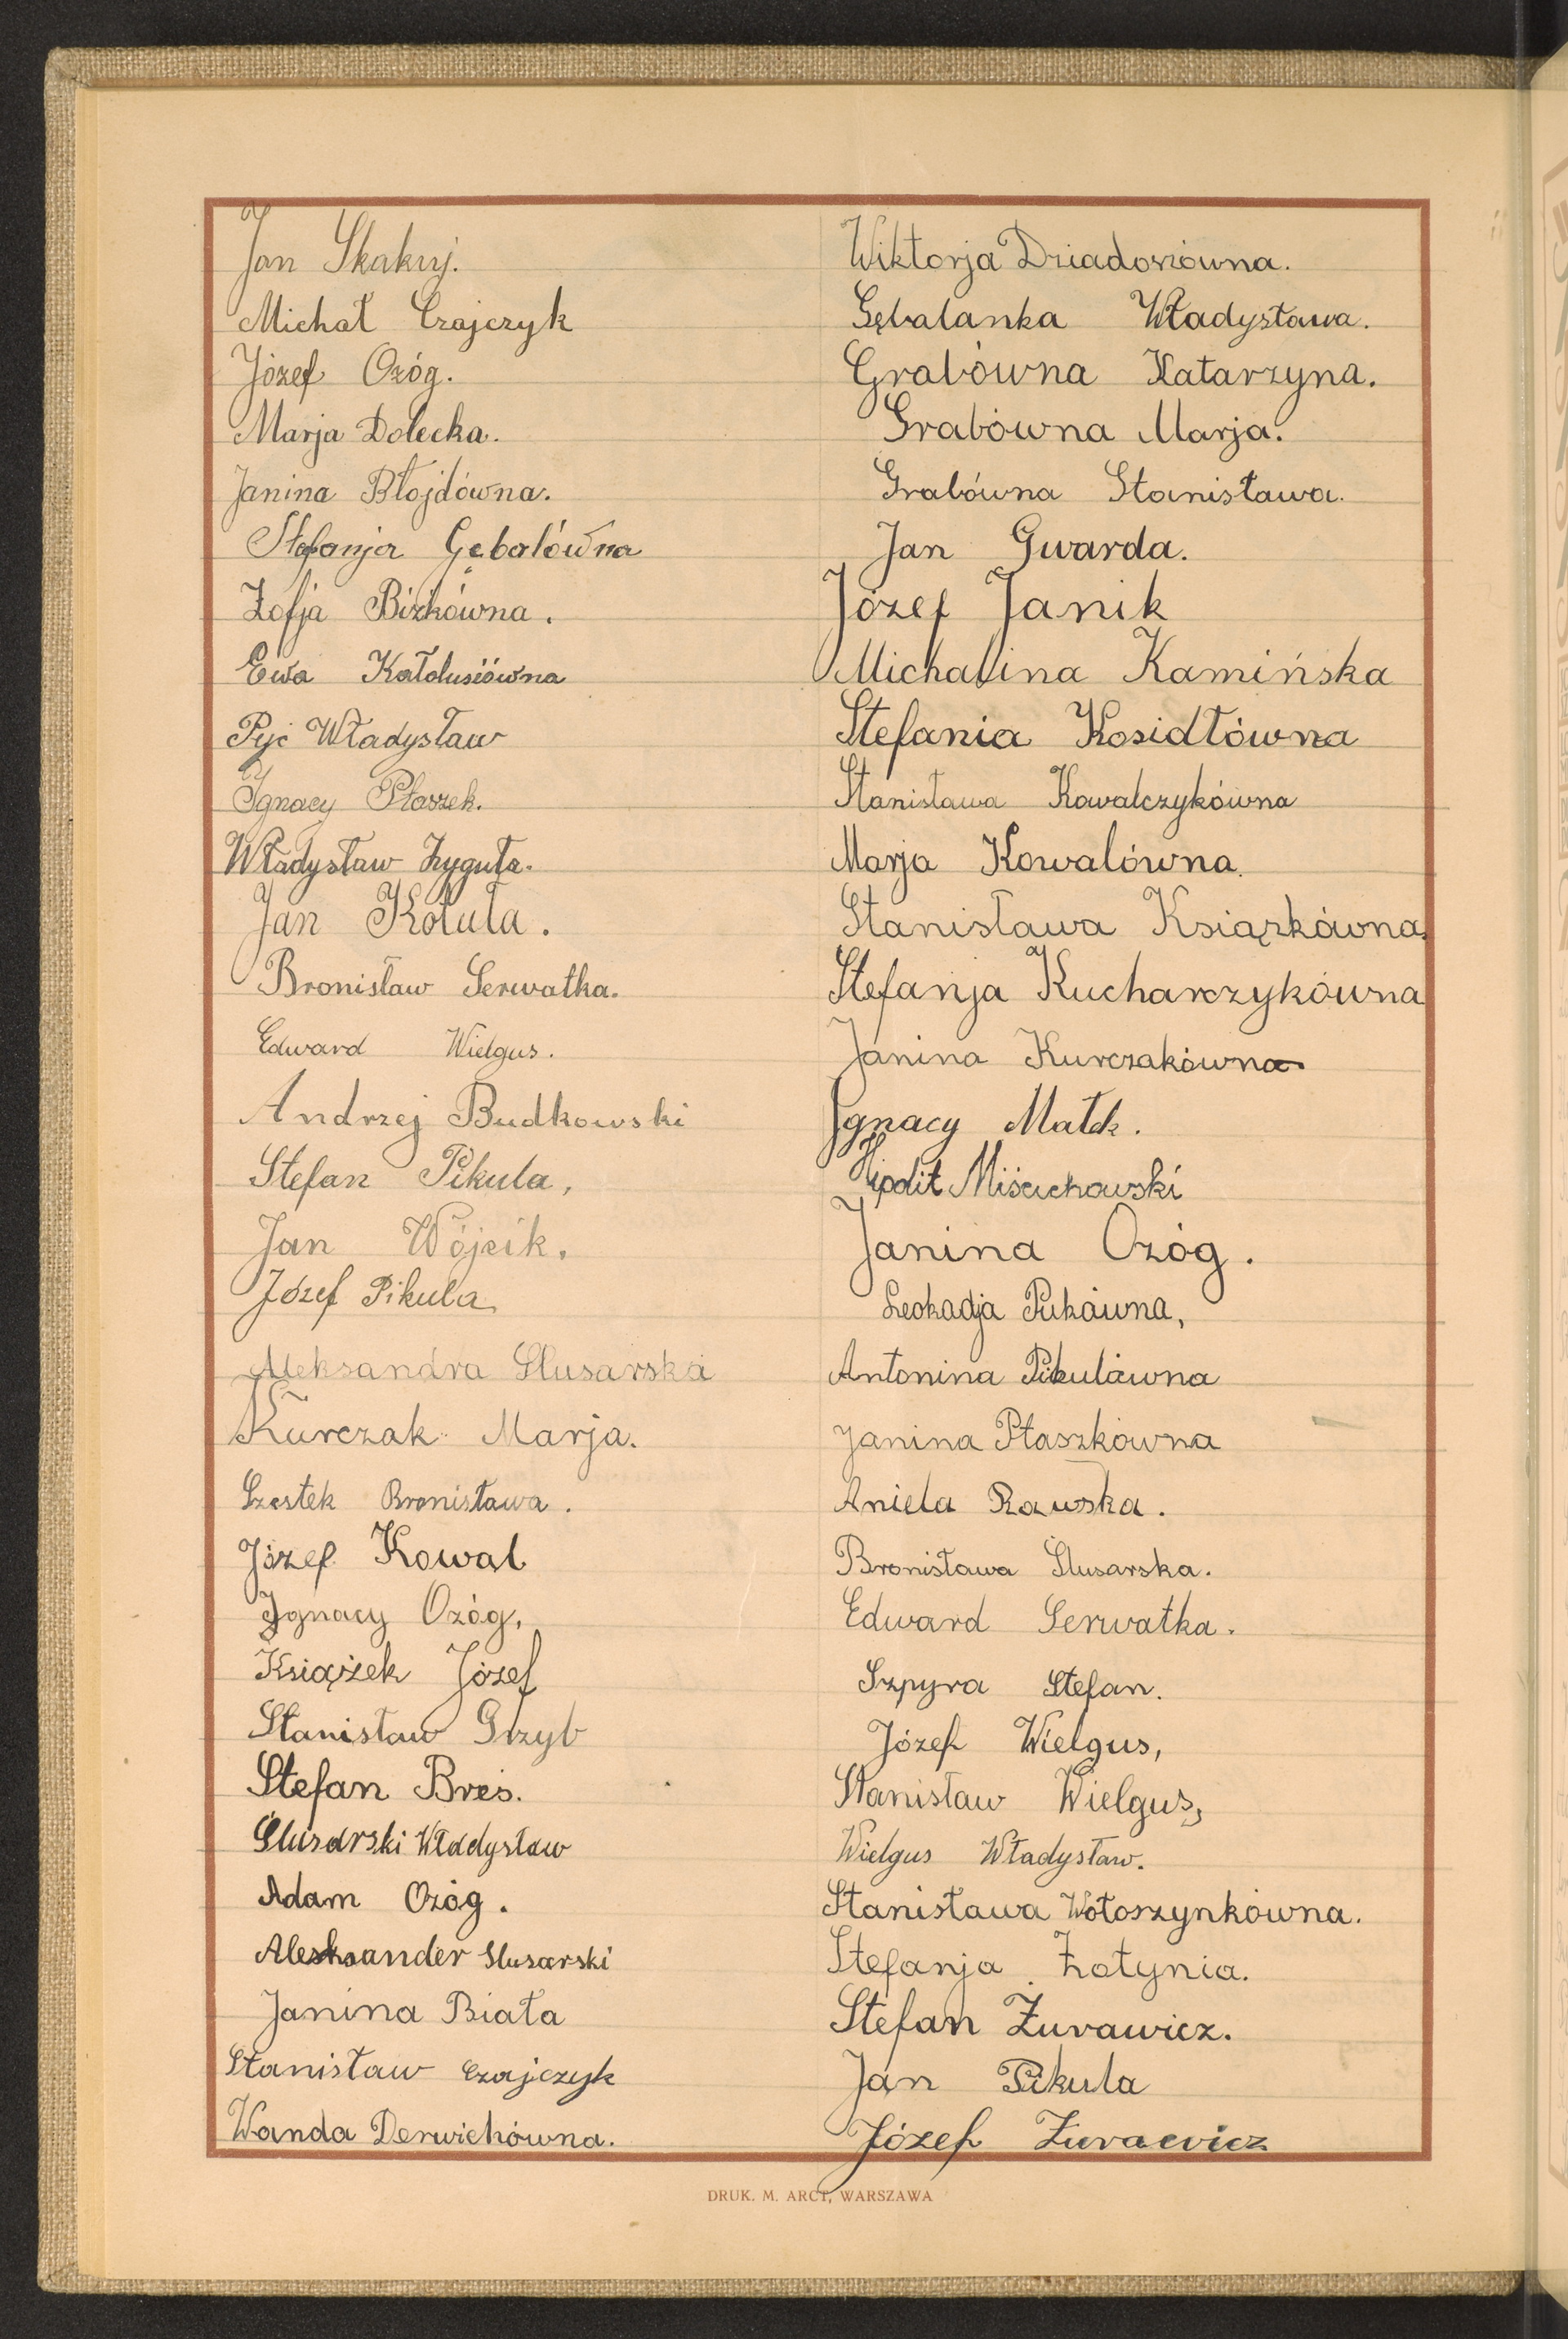 Jan Skakuj.
Michał Czajczyk
Józef Ozóg.
Marja Dolecka.
Janina Błojdówna.
Stefanja Gębalówna
Zofja Bizkówna.
Ewa Kałdusiówna
Pyć Władysław
Ignacy Ptaszek.
Władysław Zyguła.
Jan Kotuła.
Bronisław Serwatka.
Edward Wielgus.
Andrzej Budkowski
Stefan Pikula,
Jan Wójcik.
Józef Pikula
Aleksandra Slusarska
Kurczak Marja.
Szostek Bronisława.
Józef Kowal
Ignacy Ozóg,
Książek Józef
Stanisław Grzyb
Stefan Breś.
Ślusarski Władysław
Adam Ozóg.
Aleksander Slusarski
Janina Biała
Stanisław Czajczyk
Wanda Derwichówna.
Wiktorja Dziadosiówna.
Gębalanka Władysława.
Grabówna Katarzyna.
Grabówna Marja.
Grabówna Stanisława.
Jan Gwarda.
Józef Janik
Michalina Kamińska
Stefania Kosidłówna
Stanisława Kowalczykówna
Marja Kowalówna.
Stanisława Książkówna.
Stefanja Kucharczykówna
Janina Kurczakówna
Ignacy Małek.
Miścichowski
Janina Ozóg.
Leokadja Pukówna,
Antonina Pikulówna
Janina Ptaszkówna
Aniela Rawska.
Bronisława Ślusarska.
Edward Serwatka.
Szpyra Stefan.
Józef Wielgus,
Stanisław Wielgus,
Wielgus Władysław.
Stanisława Wołoszynkówna.
Stefanja Żołynia.
Stefan Żurawicz.
Jan Pikula
Józef Żurawicz
DRUK. M. ARCT, WARSZAWA